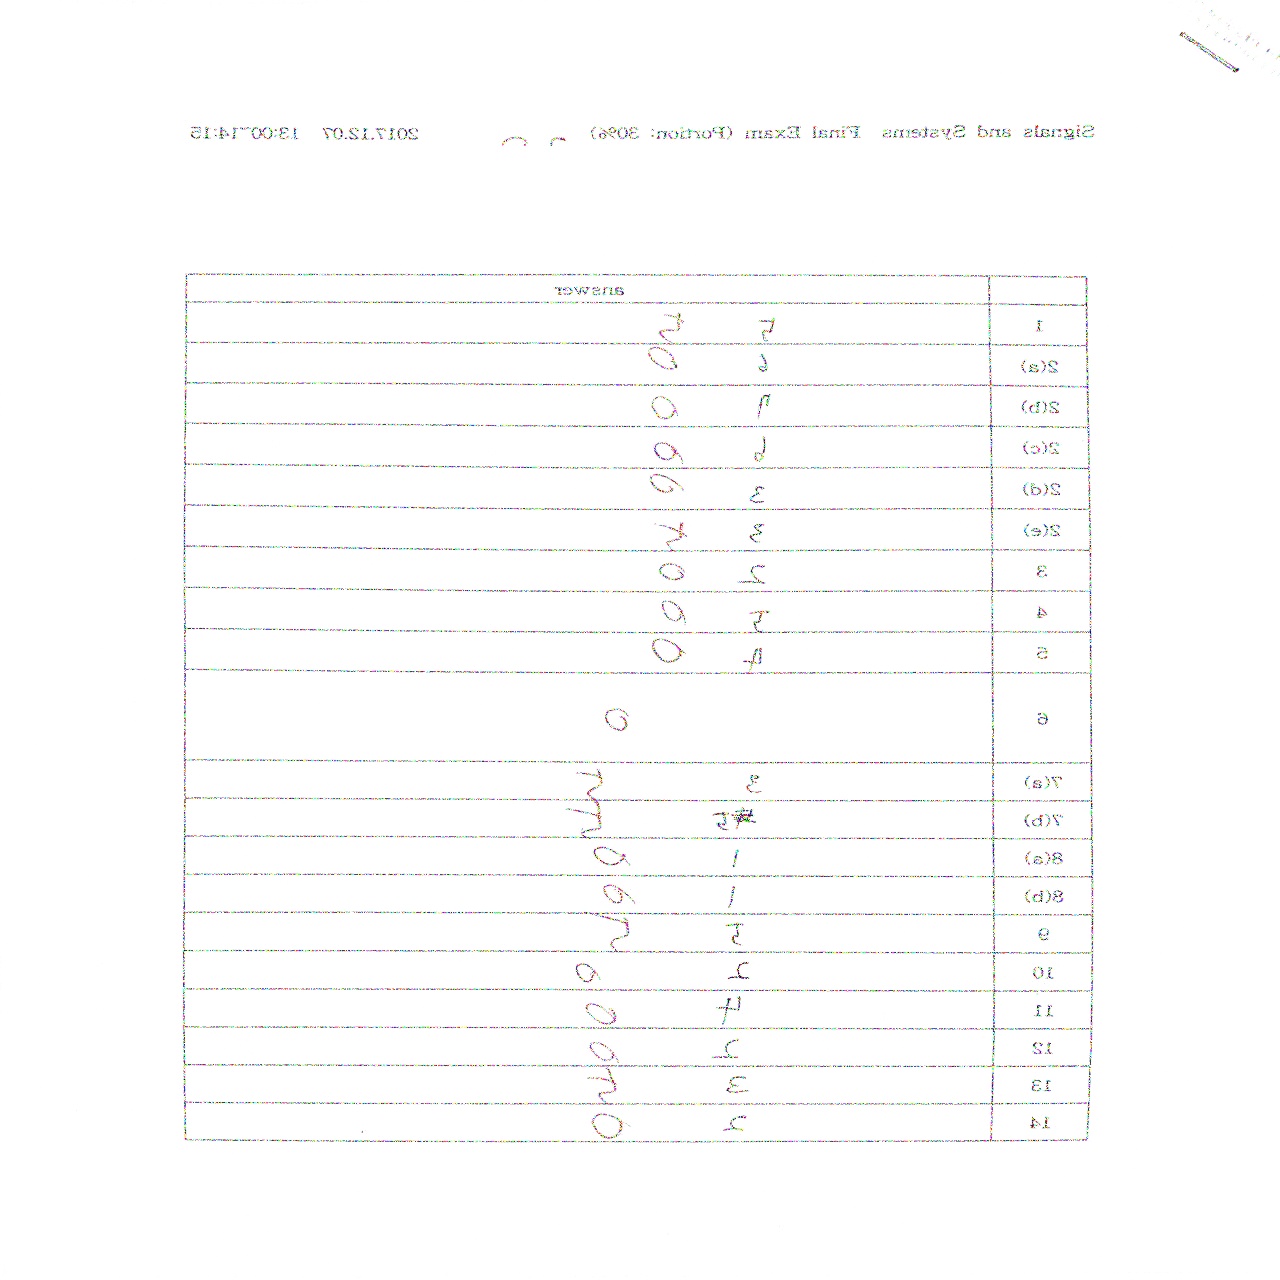 Signals and Systems Final Exam (Portion: 30%) 2017.12.07 13:00~14:15
answer
1 5 5
2(a) 6 0
2(b) 0
2(c) 6 0
2(d) 3 0
2(e) 8
3 2 0
4 5 0
5 4 0
6 0
7(a) 3
7(b) 5
8(a) 1 0
8(b) 1 0
9 5
10 2 0
11 4 0
12 2 0
13 3
14 2 0